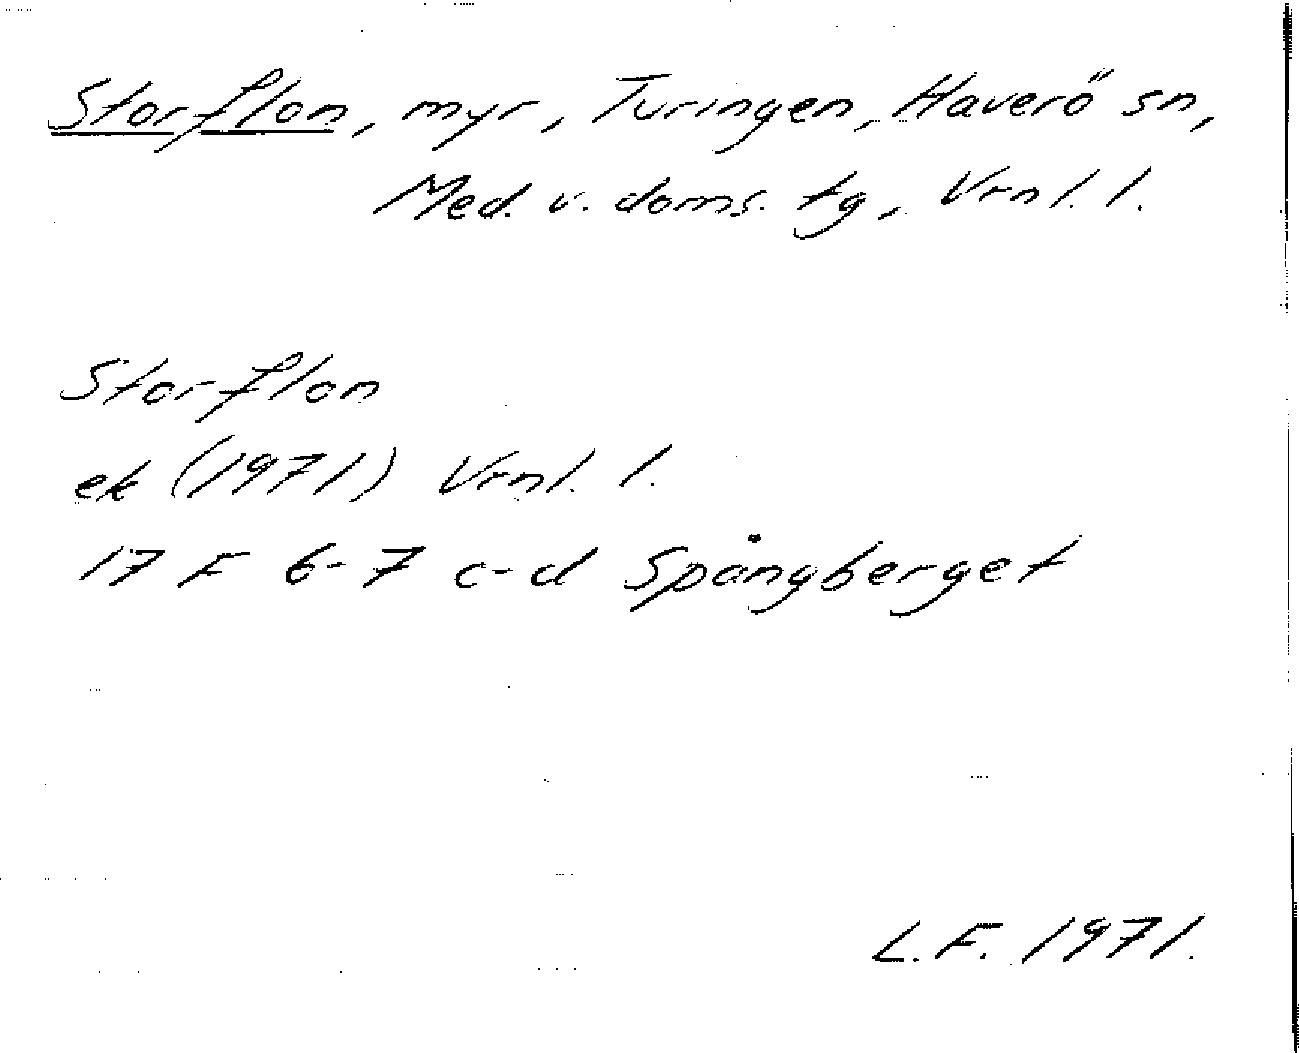 Storflon, myr, Turingen, Haverö sn,
Med. v. doms. tg, Vrnl. l.
Storflon
ek (1971) Vrnl. l.
17 F 6-7 c-d Spångberget
L.F. 1971.